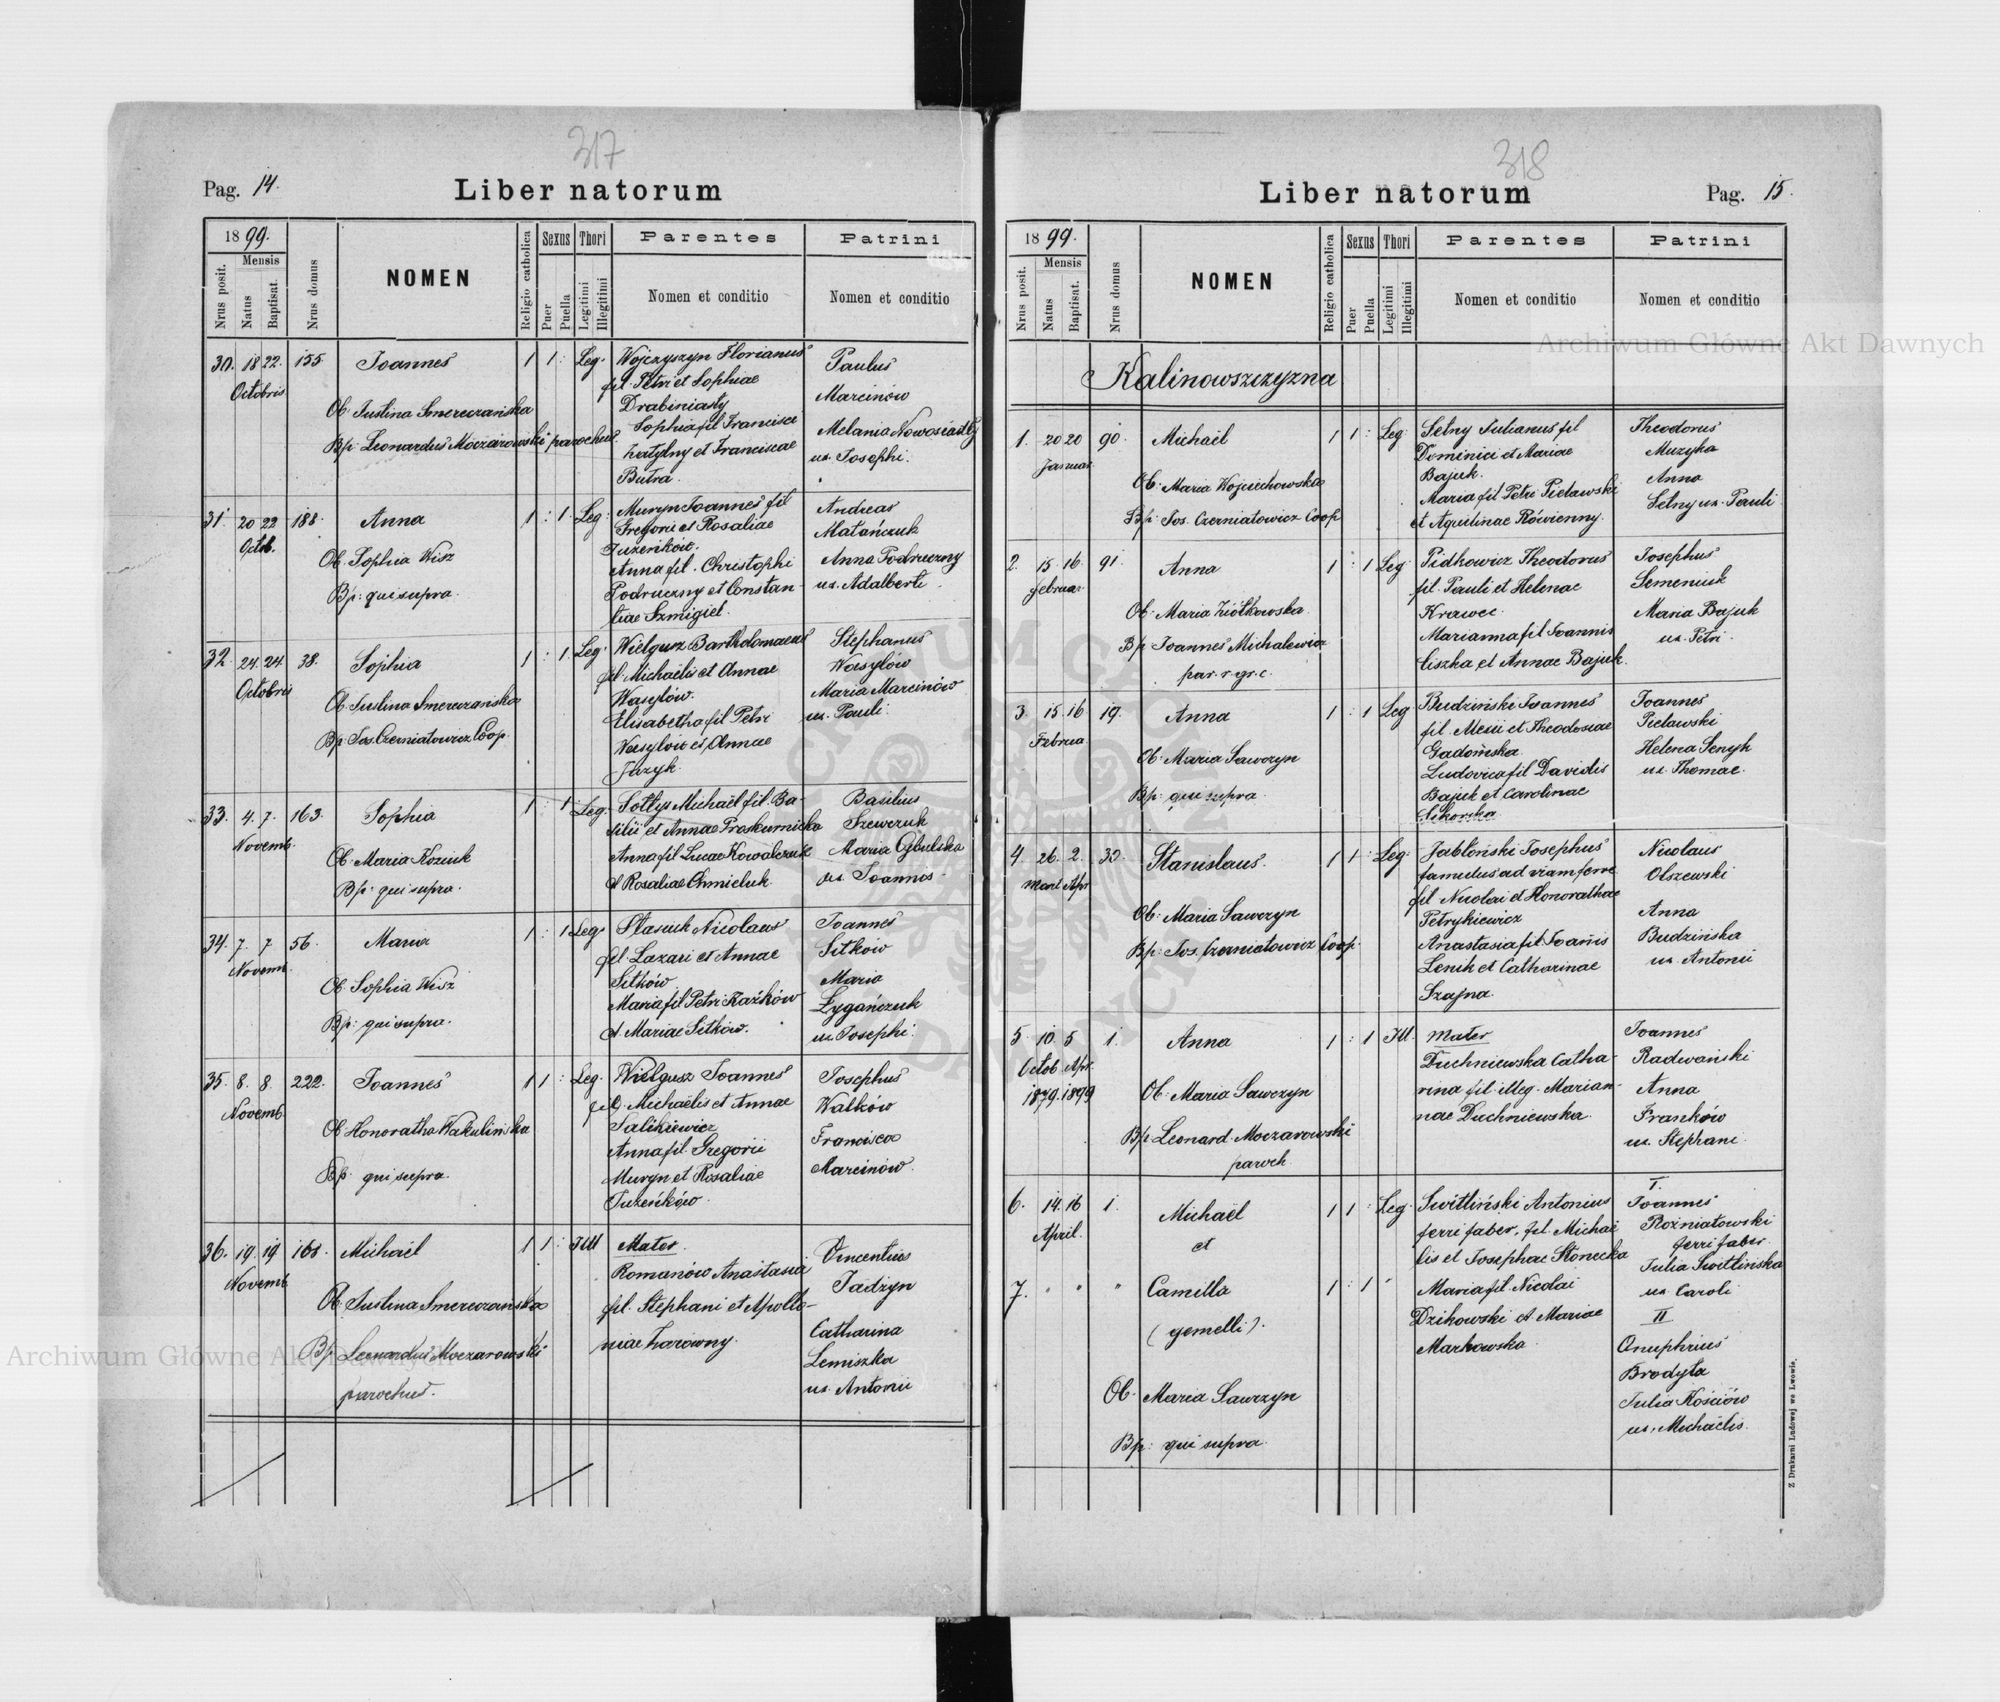 317
Pag. 14.
Liber natorum
1899.
Mensis
Nrus posit.
Natus
Baptisat.
Nrus domus
NOMEN
Religio catholica
Sexus
Puer
Puella
Thori
Legitimi
Illegitimi
Parentes
Nomen et conditio
Patrini
Nomen et conditio
30. 18 22. 155
Octobris
Joannes
Ob. Justina Smereczańska
Bp: Leonardus Moczarowski parochus.
1 1 : Leg.
Wojczyszyn Florianus
fil. Petri et Sophiae
Drabiniasty
Sophia fil Francisci
Zatylny et Franciscae
Butra.
Paulus
Marcinów
Melania Nowosiadły
ux. Josephi.
31. 20 22 188.
Octob.
Anna
Ob. Sophia Wisz
Bp: qui supra.
1 : 1. Leg.
Muryn Joannes fil
Gregorii et Rosaliae
Juzeńków.
Anna fil. Christophi
Podruczny et Constan-
tiae Szmigiel.
Andreas
Matańczuk
Anna Podruczny
ux. Adalberti.
32. 24. 24. 38.
Octobris
Sophia
Ob. Justina Smereczańska
Bp. Jos. Czerniatowicz Coop.
1 : 1. Leg.
Wielgusz Bartholomaeus
fil. Michaelis et Annae
Wasylów.
Elisabetha fil Petri
Wasylów et Annae
Juzyk.
Stephanus
Wasylów
Maria Marcinów
ux. Pauli.
33. 4. 7. 163.
Novemb.
Sophia
Ob. Maria Koziuk
Bp: qui supra.
1 : 1 Leg.
Sołtys Michaël fil. Ba-
silii et Annae Proskurnicka
Anna fil Lucae Kowalczuk
et Rosaliae Chmieluk.
Basilius
Szewczuk
Maria Cybulska
ux. Joannis.
34. 7. 7. 56.
Novem.
Maria
Ob. Sophia Wisz
Bp: qui supra.
1 : 1 Leg.
Stasiuk Nicolaus
fil. Lazari et Annae
Sitków
Maria fil Petri Kaźków
et Mariae Sitków.
Joannes
Sitków
Maria
Łygańczuk
ux. Josephi.
35. 8. 8. 222.
Novemb.
Joannes
Ob Honoratha Wakulińska
Bp: qui supra.
1 1 : Leg.
Wielgusz Joannes
fil. Michaelis et Annae
Salikiewicz
Anna fil. Gregorii
Muryn et Rosaliae
Juzeńków.
Josephus
Walków
Francisca
Marcinów.
36. 19. 19 168.
Novemb.
Michaël
Ob. Justina Smereczańska
Bp. Leonardus Moczarowski
parochus.
1 1 : Ill
Mater.
Romanów Anastasia
fil. Stephani et Apollo-
niae Zarówny.
Vincentius
Jadzyn
Catharina
Lemiszka
ux. Antonii
318
Liber natorum
Pag. 15.
1899.
Mensis
Nrus posit.
Natus
Baptisat.
Nrus domus
NOMEN
Religio catholica
Sexus
Puer
Puella
Thori
Legitimi
Illegitimi
Parentes
Nomen et conditio
Patrini
Nomen et conditio
Kalinowszczyzna
1. 20 20 90.
Januar.
Michaël
Ob: Maria Wojciechowska
Bp: Jos. Czerniatowicz Coop
1 1 : Leg.
Setny Julianus fil
Dominici et Mariae
Bajuk.
Maria fil Petri Pielawski
et Aquilinae Rówienny.
Theodorus
Muzyka
Anna
Setny ux. Pauli
2. 15. 16. 91.
februar.
Anna
Ob: Maria Ziółkowska.
Bp. Joannes Michalewicz
par. r. gr. c.
1 : 1 Leg.
Pidhowicz Theodorus
fil. Pauli et Helenae
Krawec.
Marianna fil Joannis
Ciszka et Annae Bajuk.
Josephus
Semeniuk
Maria Bajuk
ux. Petri.
3. 15. 16 19.
Februa.
Anna
Ob: Maria Sawczyn
Bp: qui supra.
1 : 1 Leg
Budziński Joannes
fil. et Theodosiae
Gadomska
Ludovica fil Davidis
Bajuk et Carolinae
Sikorska.
Joannes
Pielawski
Helena Senyk
ux. Thomae.
4. 26. 2. 30.
Mart Apr
Stanislaus.
Ob. Maria Sawczyn
Bp: Jos. Czerniatowicz Coop.
1 1 : Leg.
Jabłoński Josephus
famulus ad viam ferre
fil Nicolai et Honorathae
Petrykiewicz
Anastasia fil Joañis
Lenik et Catharinae
Szajna.
Nicolaus
Olszewski
Anna
Budzińska
ux. Antonii
5 10. 5 1.
Octob. Apr.
1879. 1899
Anna
Ob: Maria Sawczyn
Bp. Leonard. Moczarowski
paroch.
1 : 1 Ill.
Mater
Duchniewska Catha-
rina fil. illeg. Marian-
nae Duchniewska.
Joannes
Radwański
Anna
Franków
ux. Stephani.
6. 14. 16 1.
April.
Michaël
et
1 1 : Leg.
7. " " "
Camilla
(gemelli).
1 : 1 "
Ob. Maria Sawczyn
Bp: qui supra.
Switliński Antonius
ferri faber, fil. Michaë
lis et Josephae Słonecka
Maria fil. Nicolai
Dzikowski et Mariae
Markowska.
I.
Joannes
Rożniatowski
ferri faber.
Julia Switlińska
ux. Caroli
II
Onuphrius
Brodyła
Julia Kościów
ux. Michaelis.
Z Drukarni Ludowej we Lwowie.
Archiwum Główne Akt Dawnych
Archiwum Główne Akt Dawnych